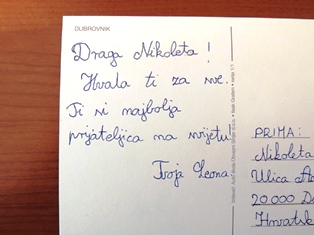 DUBROVNIK
Draga Nikoleta!
Hvala ti za sve.
Ti si najbolja
prijateljica na svijetu!
Tvoja Leona
PRIMA:
Nikoleta
Ulica
20000
Hrvatsk